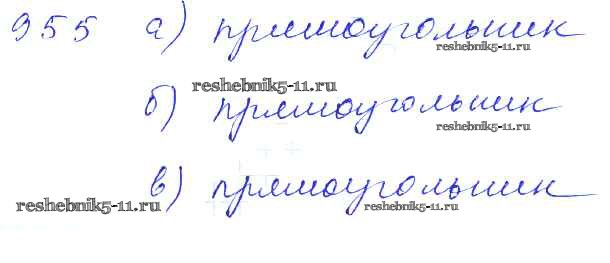 955 а) прямоугольник
reshebnik5-11.ru
reshebnik5-11.ru
б) прямоугольник
reshebnik5-11.ru
в) прямоугольник
reshebnik5-11.ru
reshebnik5-11.ru